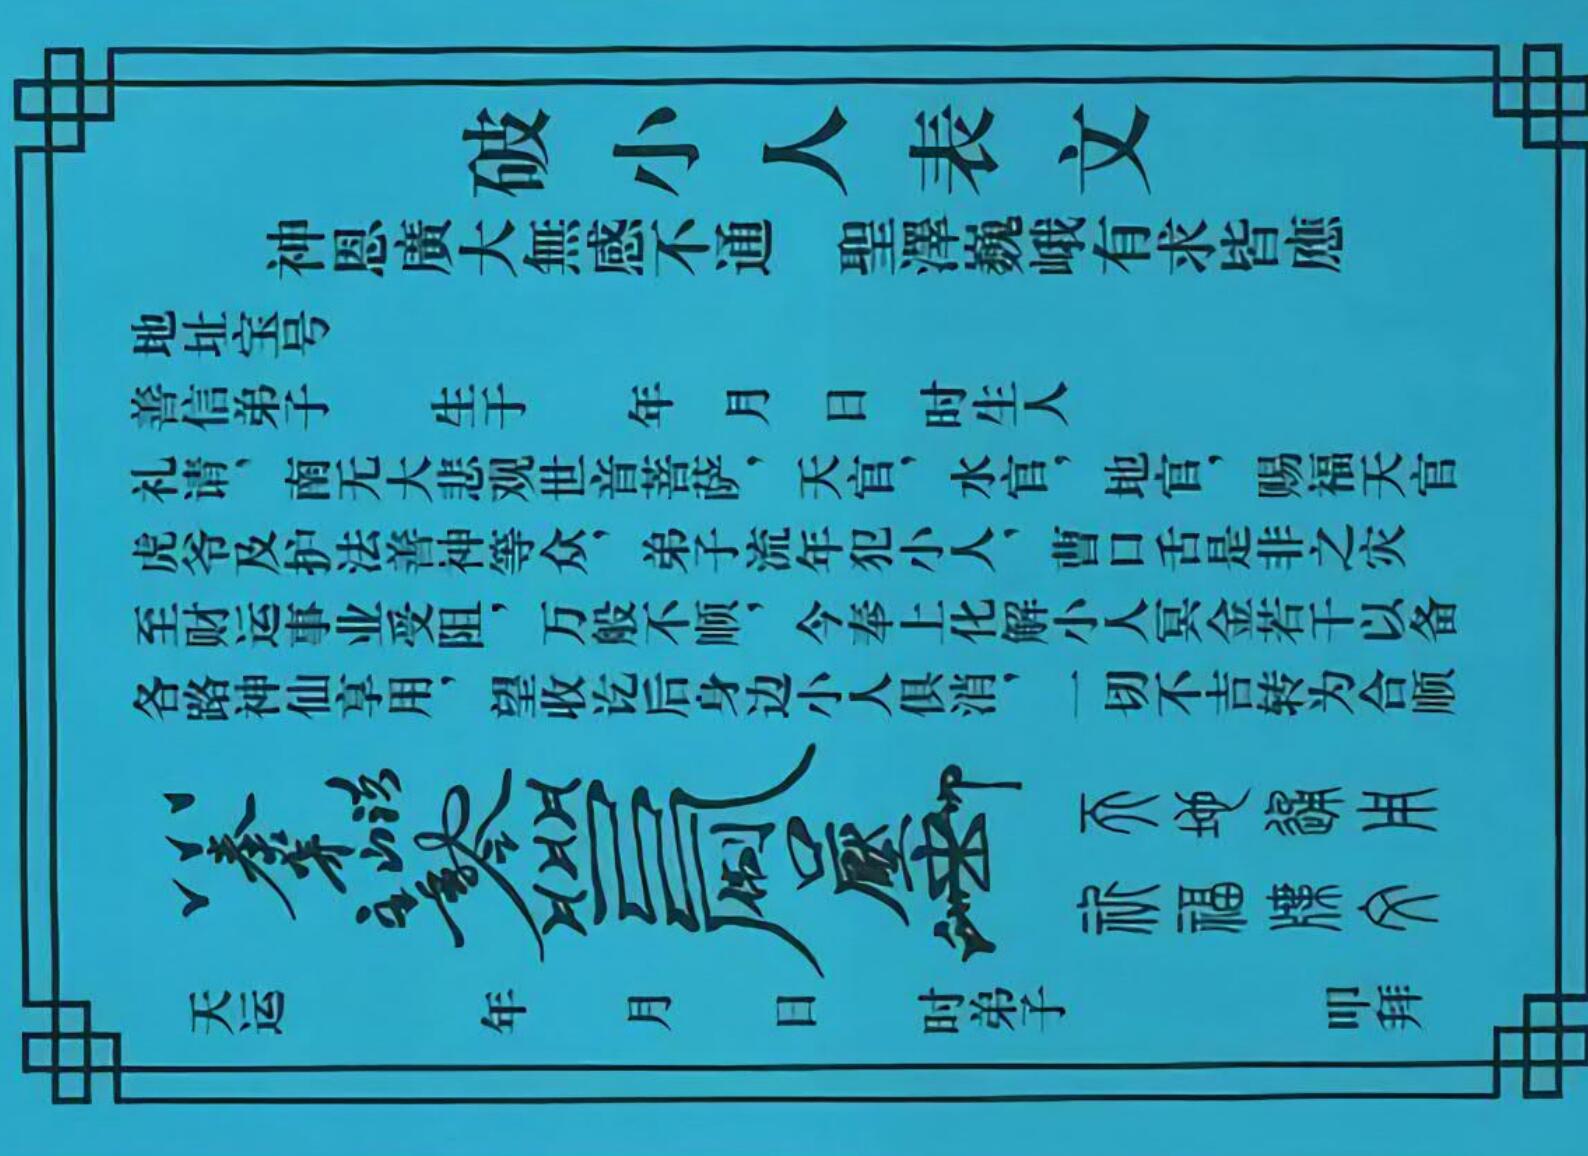 破小人表文
神恩廣大無感不通 聖澤巍峨有求皆應
地址宝号
善信弟子 生于 年 月 日 时生人
礼请，南无大悲观世音菩萨，天官，水官，地官，赐福天官
虎爷及护法善神等众，弟子流年犯小人，曹口舌是非之灾
至财运事业受阻，万般不顺，今奉上化解小人冥金若干以备
各路神仙享用，望收讫后身边小人俱消，一切不吉转为合顺
天运 年 月 日 时弟子 叩拜